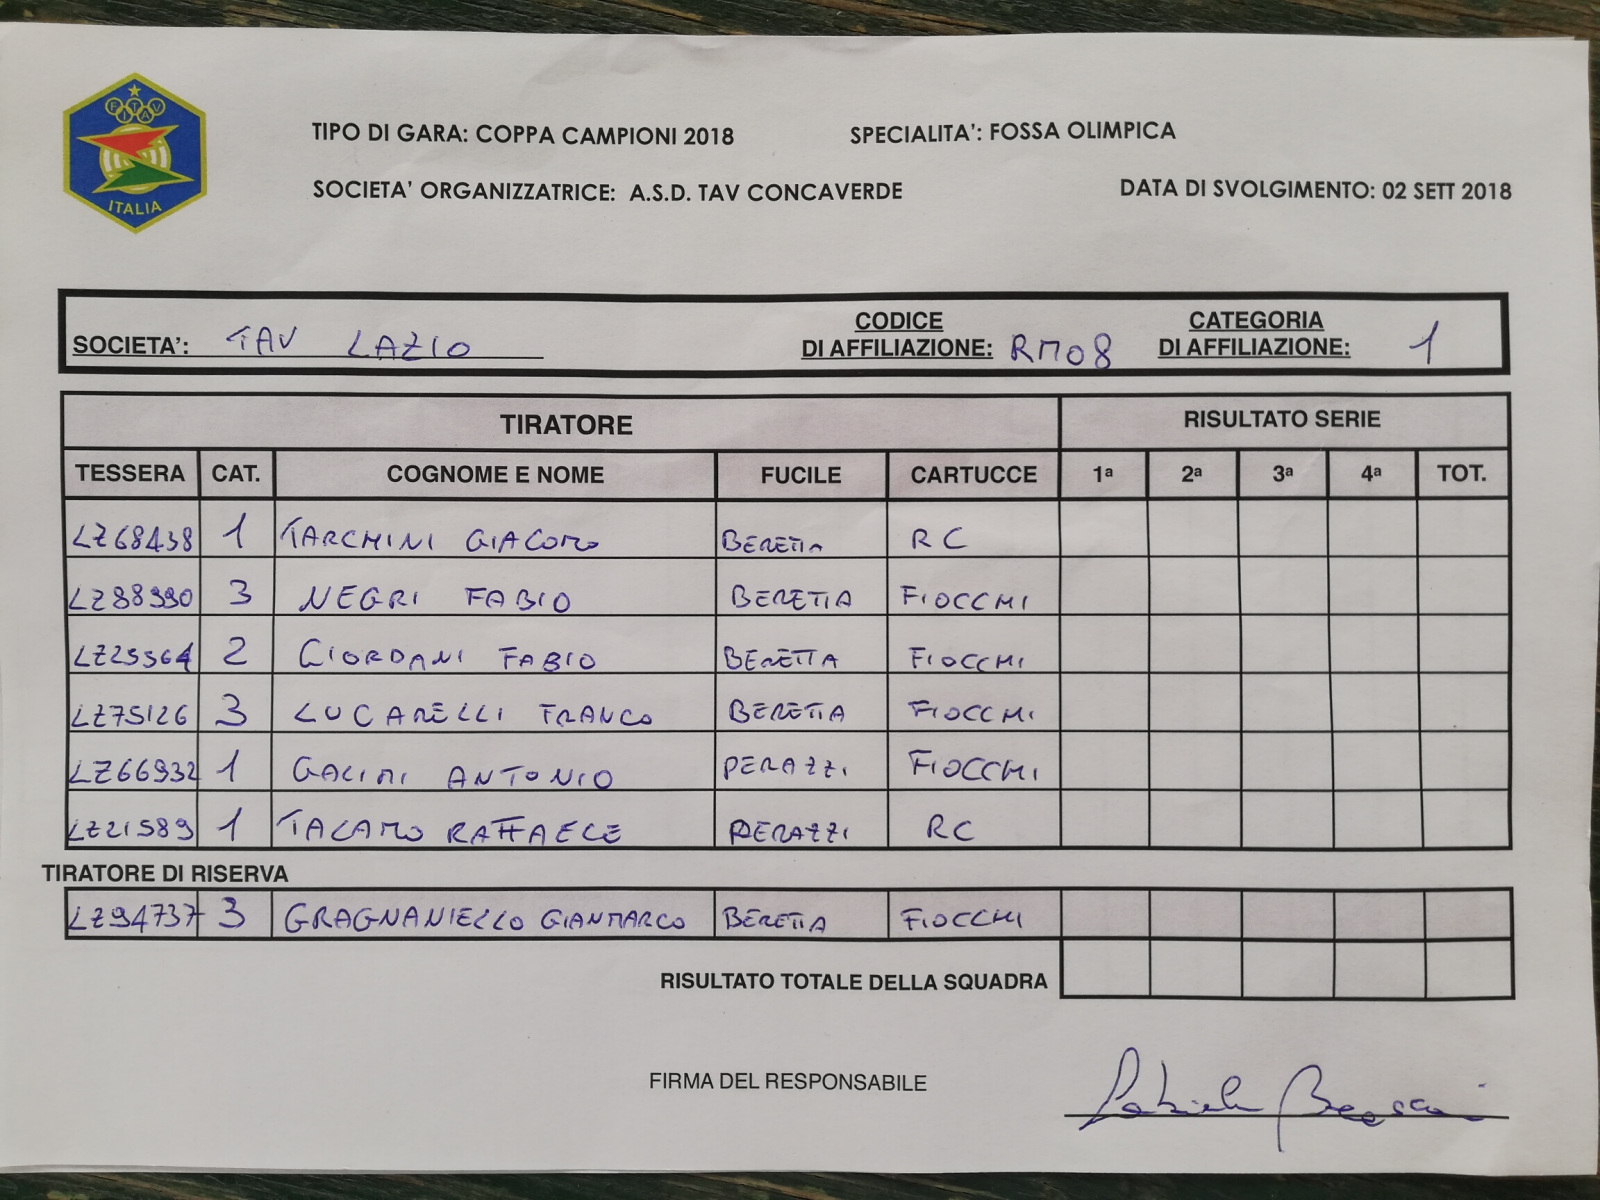 FITAV
ITALIA
TIPO DI GARA: COPPA CAMPIONI 2018 SPECIALITA': FOSSA OLIMPICA
SOCIETA' ORGANIZZATRICE: A.S.D. TAV CONCAVERDE DATA DI SVOLGIMENTO: 02 SETT 2018
SOCIETA': TAV LAZIO CODICE DI AFFILIAZIONE: RM08 CATEGORIA DI AFFILIAZIONE: 1
TIRATORE RISULTATO SERIE
TESSERA CAT. COGNOME E NOME FUCILE CARTUCCE 1ª 2ª 3ª 4ª TOT.
LZ68438 1 TARCHINI GIACOMO BERETTA RC
LZ88990 3 NEGRI FABIO BERETTA FIOCCHI
LZ25564 2 GIORDANI FABIO BERETTA FIOCCHI
LZ75126 3 LUCARELLI FRANCO BERETTA FIOCCHI
LZ66932 1 GALIMI ANTONIO PERAZZI FIOCCHI
LZ21589 1 TALAMO RAFFAELE PERAZZI RC
TIRATORE DI RISERVA
LZ94737 3 GRAGNANIELLO GIANMARCO BERETTA FIOCCHI
RISULTATO TOTALE DELLA SQUADRA
FIRMA DEL RESPONSABILE